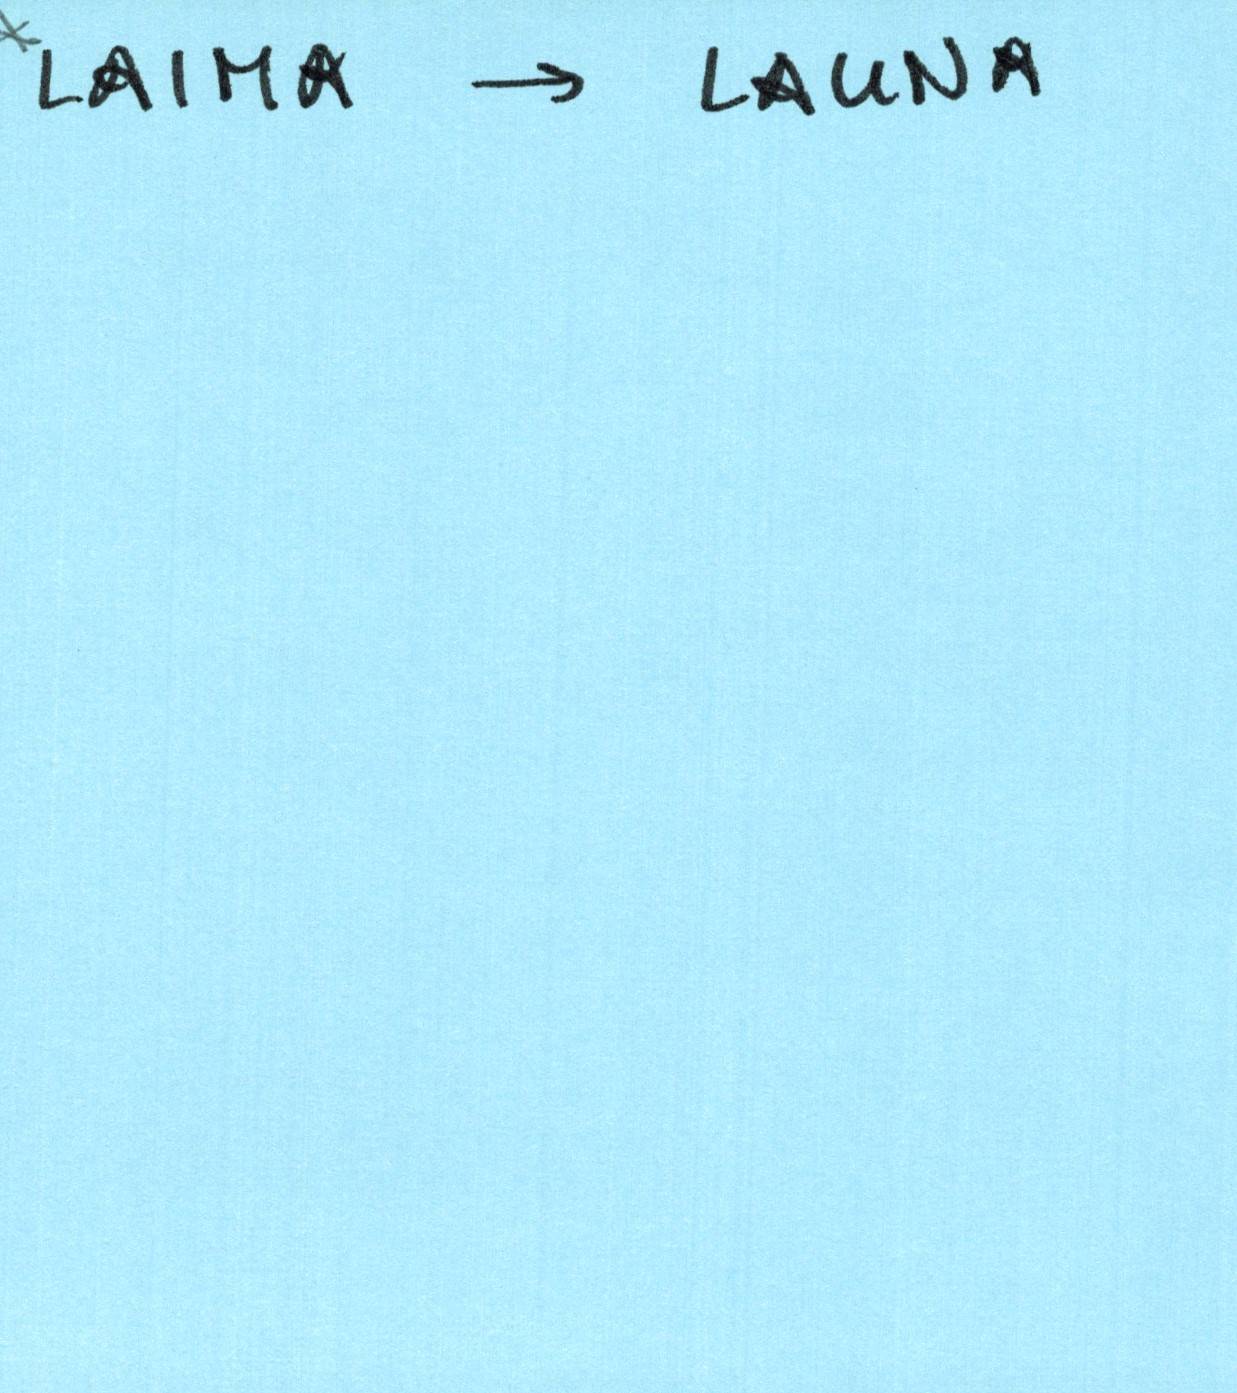 *LAIMA → LAUNA